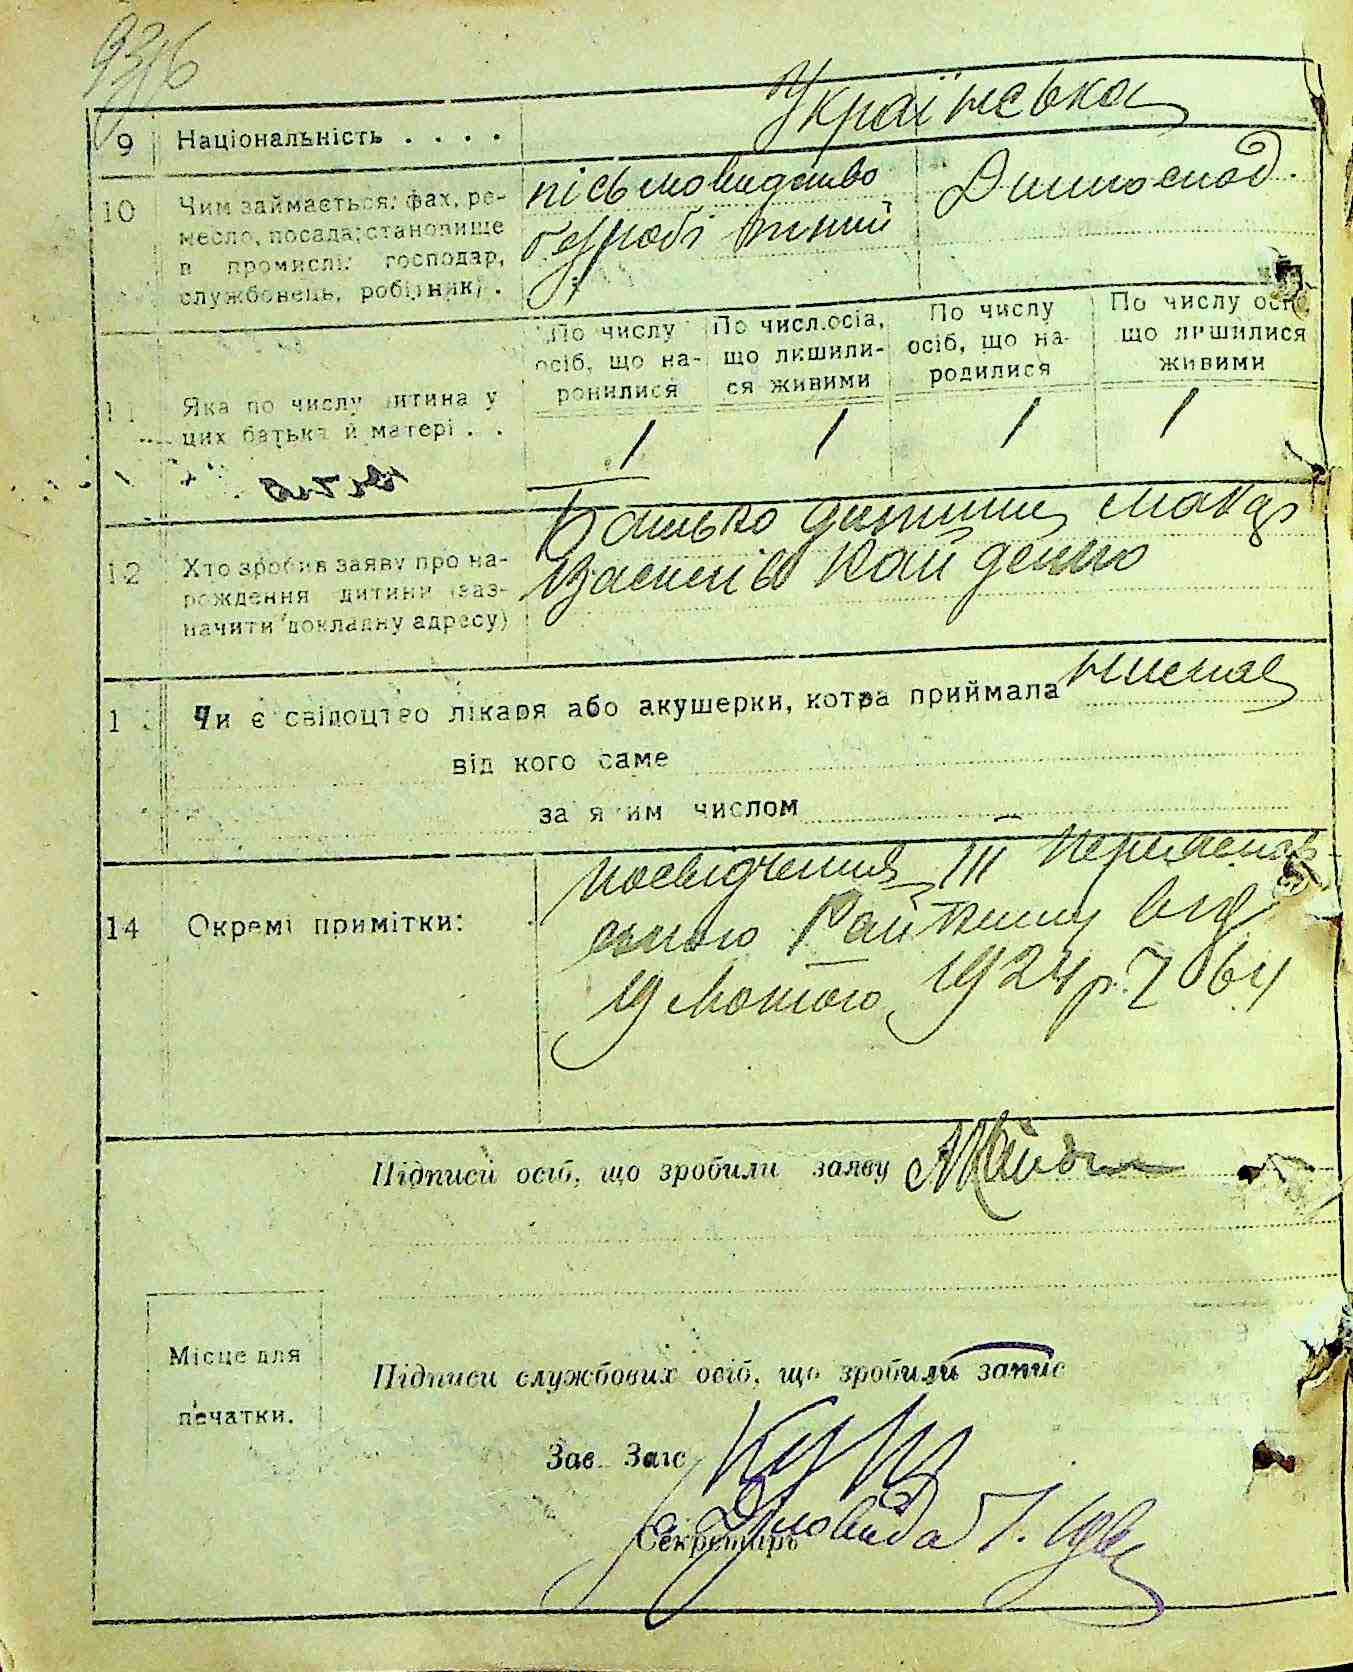 9 Національність . . . . Українська
10 Чим займається: фах, ре-
месло, посада; становище
в промислі: господар,
службовець, робітник) .
письмоводство
безробітний
Домогоспод.
По числу
осіб, що на-
родилися
По числ. осіб,
що лишили-
ся живими
По числу
осіб, що на-
родилися
По числу осіб
що лишилися
живими
11 Яка по числу дитина у
цих батька й матері . .
1 1 1 1
12 Хто зробив заяву про на-
рождення дитини (заз-
начити докладну адресу)
Батько дитини Макар
Васильів Кайденко
1 Чи є свідоцтво лікаря або акушерки, котра приймала немає
від кого саме
за яким числом
14 Окремі примітки:
посвідчення III
Райвику від
19 лютого 1924 р. 7064
Підписи осіб, що зробили заяву
Місце для
печатки.
Підписи службових осіб, що зробили запис
Зав. Загс
Секретарь